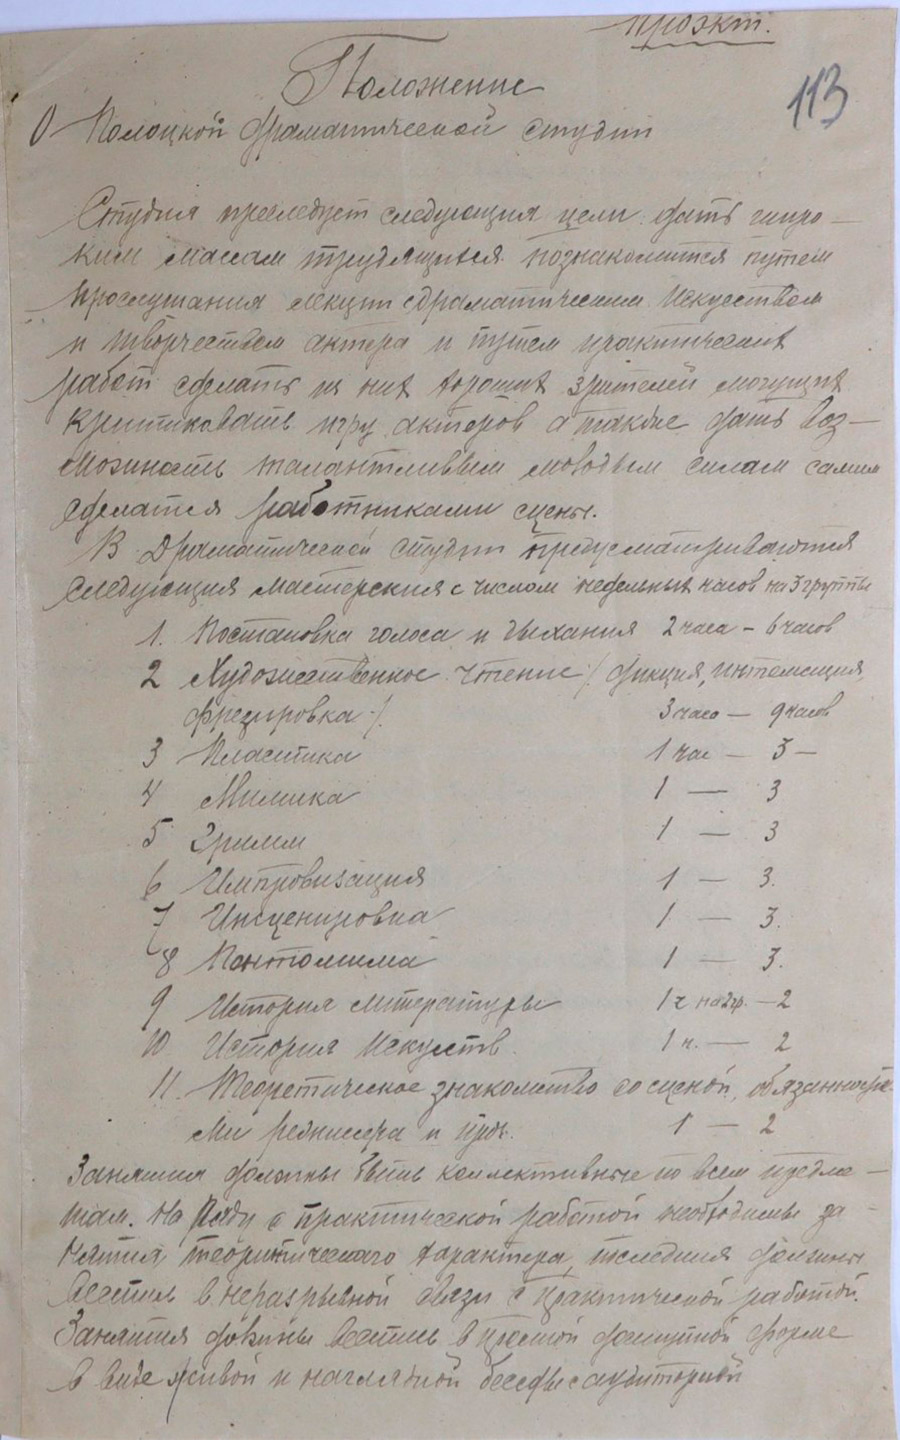 Проэкт.
113
Положение
О Полоцкой драматической студии
Студия преследует следующия цели дать широ-
ким массам трудящихся познакомится путем
прослушания лекции с драматическим искусством
и творчеством актера и путем практических
работ сделать из них хороших зрителей могущих
критиковать игру актеров а также дать воз-
можность талантливым молодым силам самим
сделатся работниками сцены.
В Драматической студии предусматриваются
следующия мастерския с числом недельных часов на 3 группы
1. Постановка голоса и дыхания 2 часа - 6 часов
2 Художественное чтение /дикция, интонация,
фразировка/. 3 часа - 9 часов
3 Пластика 1 час - 3 -
4 Мимика 1 - 3
5 Грим 1 - 3
6 Импровизация 1 - 3.
7 Инсценировка 1 - 3.
8 Пантомима 1 - 3.
9 История литературы 1 ч на 2 гр. - 2
10 История Искуств. 1 ч. - 2
11. Теоретическое знакомство со сценой, обязанностя
ми режиссера и проч. 1 - 2
Занятия должны быть коллективные по всем предме-
там. На ряду с практической работой необходимы за-
нятия теоритического характера, последния должны
вестись в неразрывной связи с практической работой.
Занятия должны вестись в простой доступной форме
в виде живой и наглядной беседы с аудиторией